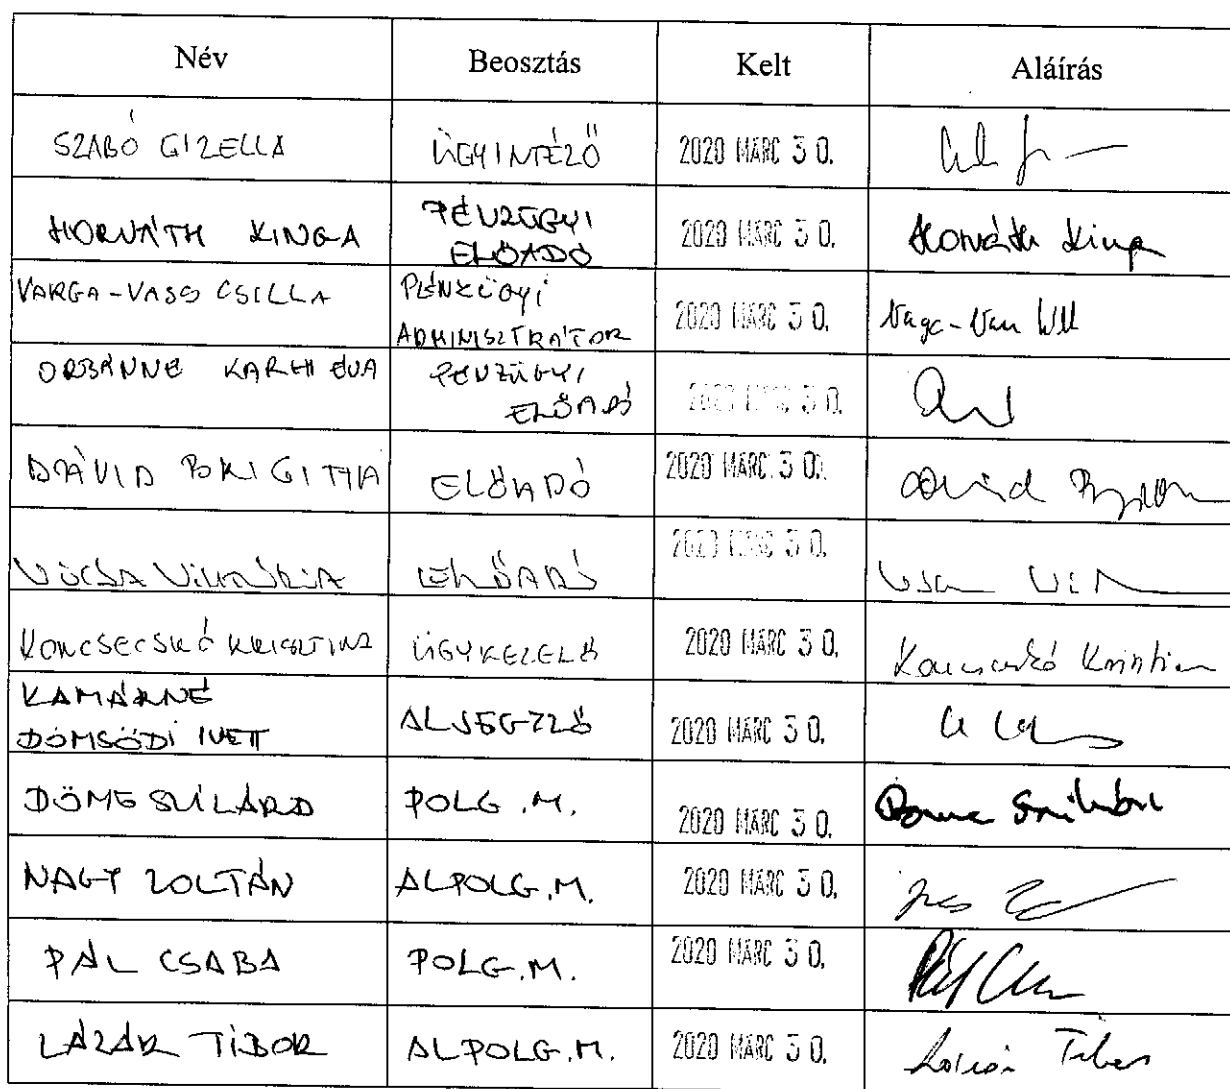 Név Beosztás Kelt Aláírás
SZABÓ GIZELLA ÜGYINTÉZŐ 2020 MÁRC 30.
HORVÁTH KINGA PÉNZÜGYI ELŐADÓ 2020 MÁRC 30. Horváth Kinga
VARGA-VASS CSILLA PÉNZÜGYI ADMINISZTRÁTOR 2020 MÁRC 30.
ORBÁNNÉ KARHI ÉVA PÉNZÜGYI ELŐADÓ 2020 MÁRC 30.
DÁVID BRIGITTA ELŐADÓ 2020 MÁRC. 30. Dávid
VÓCSA VIKTÓRIA ELŐADÓ 2020 MÁRC 30.
KONCSECSKÓ KRISZTINA ÜGYKEZELŐ 2020 MÁRC 30. Koncsecskó Krisztina
KAMÁRNÉ DÖMSÖDI IVETT ALJEGYZŐ 2020 MÁRC 30.
DÖME SZILÁRD POLG.M. 2020 MÁRC 30. Döme Szilárd
NAGY ZOLTÁN ALPOLG.M. 2020 MÁRC 30.
PÁL CSABA POLG.M. 2020 MÁRC 30.
LÁZÁR TIBOR ALPOLG.M. 2020 MÁRC 30. Lázár Tibor